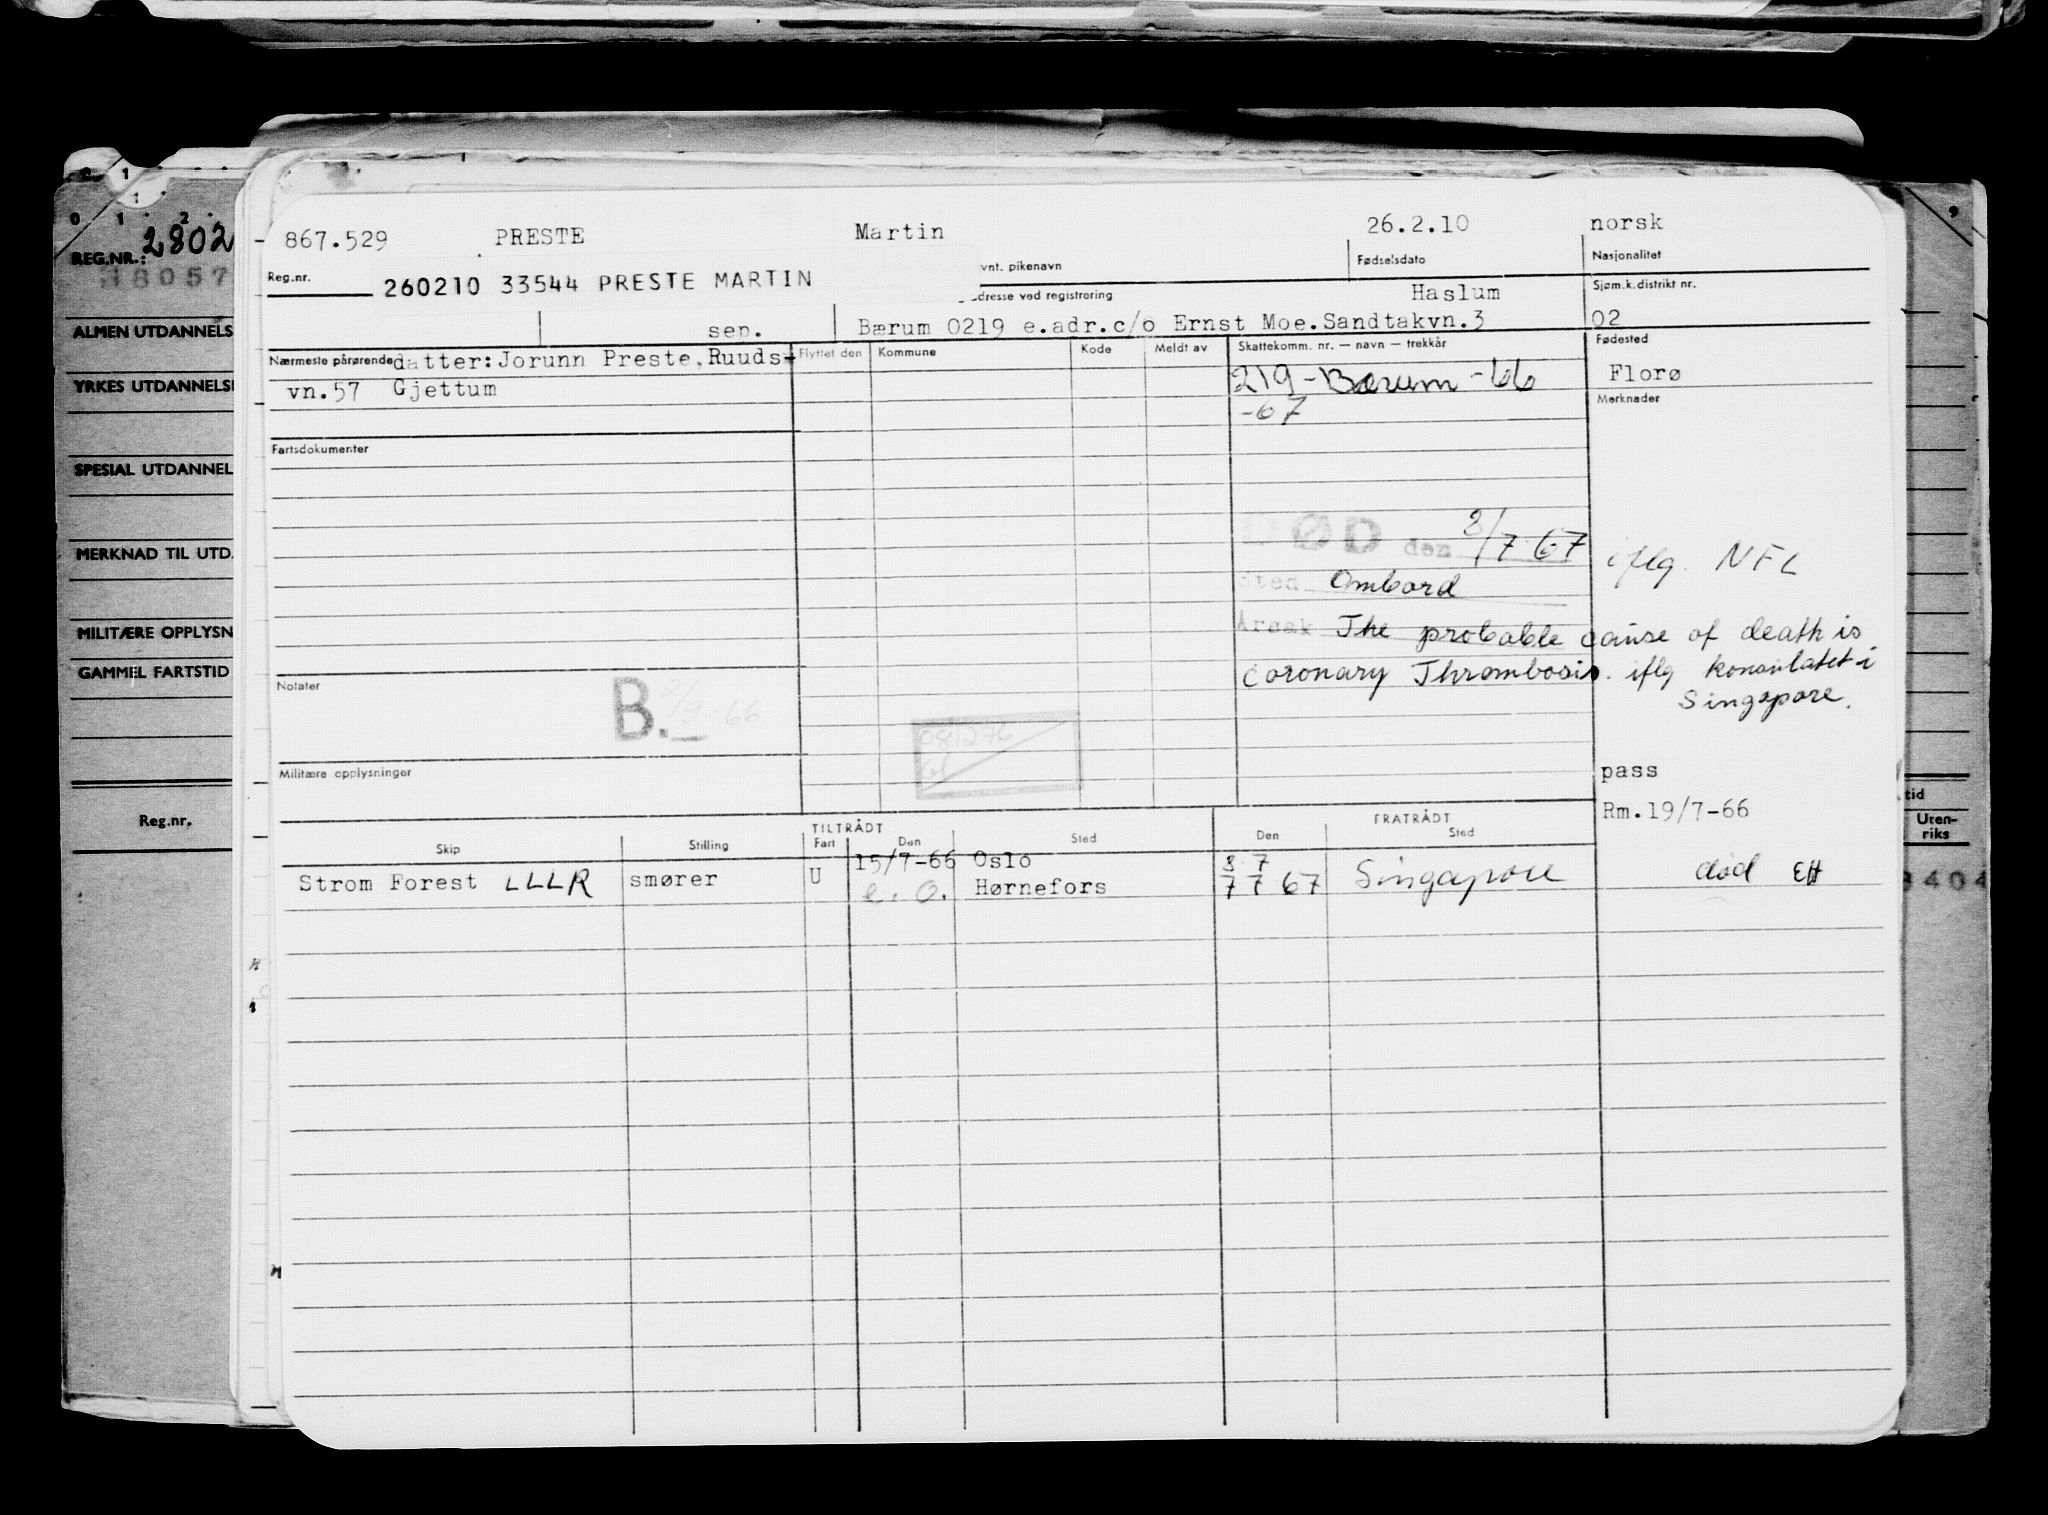 REG.NR.: 2802
ALMEN UTDANNELS
YRKES UTDANNELS
SPESIAL UTDANNEL
MERKNAD TIL UTD.
MILITÆRE OPPLYSN
GAMMEL FARTSTID
Reg.nr.
867.529 PRESTE Martin 26.2.10 norsk
Reg.nr. vnt. pikenavn Fødselsdato Nasjonalitet
260210 33544 PRESTE MARTIN
adresse ved registrering Haslum Sjøm.k.distrikt nr.
sep. Bærum 0219 e.adr.c/o Ernst Moe.Sandtakvn.3 02
Nærmeste pårørende datter:Jorunn Preste,Ruuds- Flyttet den Kommune Kode Meldt av Skattekomm. nr. — navn — trekkår Fødested
vn.57 Gjettum 219-Bærum-66 Florø
-67 Merknader
Fartsdokumenter
DØD den 8/7 67 iflg. NFL
Sted Ombord
Årsak The probable cause of death is
coronary Thrombosis. iflg konsulatet i
Singapore.
Notater B. 2/9-66
081276
Militære opplysninger pass
Rm.19/7-66
TILTRÅDT FRATRÅDT
Skip Stilling Fart Den Sted Den Sted
15/7-66 Oslo 8 7
Strom Forest LLLR smører U e.o. Hørnefors 7 7 67 Singapore død EH
tid
Uten-
riks
3404